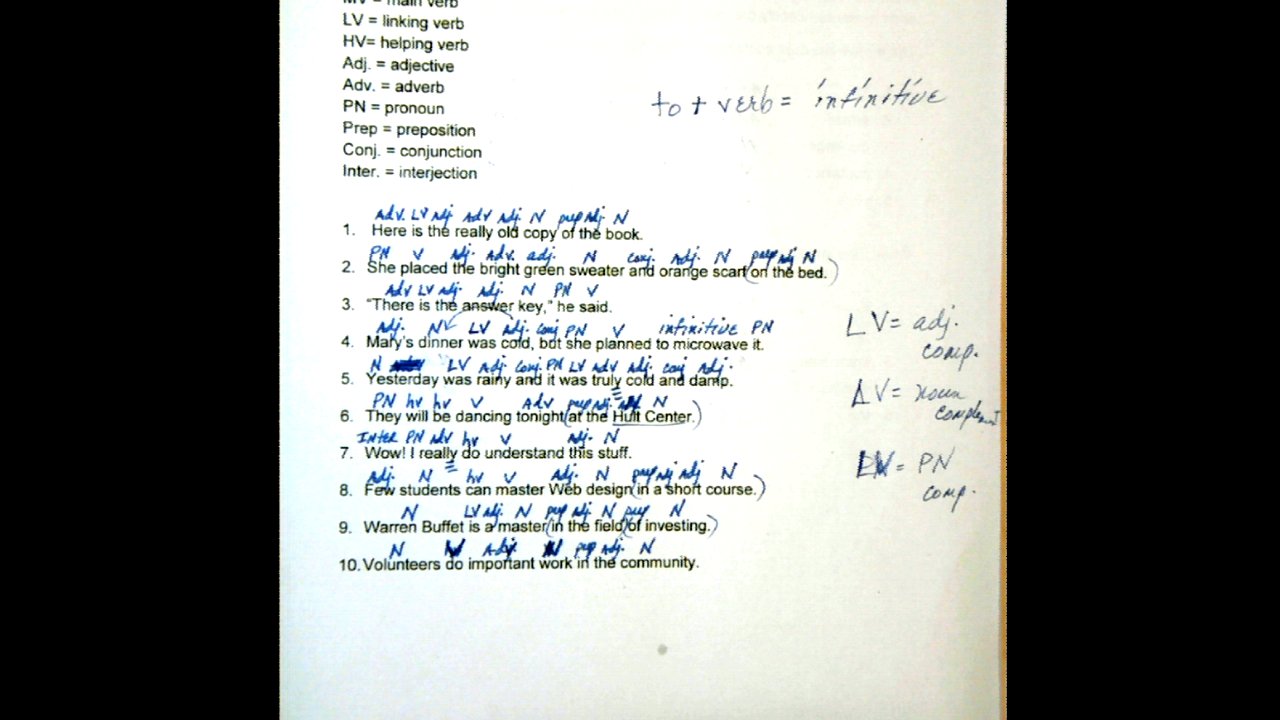 MV = main verb
LV = linking verb
HV= helping verb
Adj. = adjective
Adv. = adverb
PN = pronoun
to + verb = infinitive
Prep = preposition
Conj. = conjunction
Inter. = interjection
Adv. LV Adj. Adv Adj. N prep Adj. N
1. Here is the really old copy of the book.
PN V Adj. Adv. adj. N conj. Adj. N prep adj N
2. She placed the bright green sweater and orange scarf (on the bed.)
Adv LV Adj. Adj. N PN V
3. "There is the answer key," he said.
Adj. N LV Adj. conj PN V infinitive PN
4. Mary's dinner was cold, but she planned to microwave it.
LV = adj. comp.
N LV Adj. conj. PN LV Adv Adj. conj Adj.
5. Yesterday was rainy and it was truly cold and damp.
LV = noun complement
PN hv hv V Adv prep adj. N
6. They will be dancing tonight (at the Hult Center.)
Inter PN adv hv V adj. N
7. Wow! I really do understand this stuff.
LV = PN comp.
Adj. N hv V Adj. N prep adj adj N
8. Few students can master Web design (in a short course.)
N LV adj. N prep adj. N prep N
9. Warren Buffet is a master (in the field) (of investing.)
N V Adj. N prep Adj. N
10. Volunteers do important work in the community.